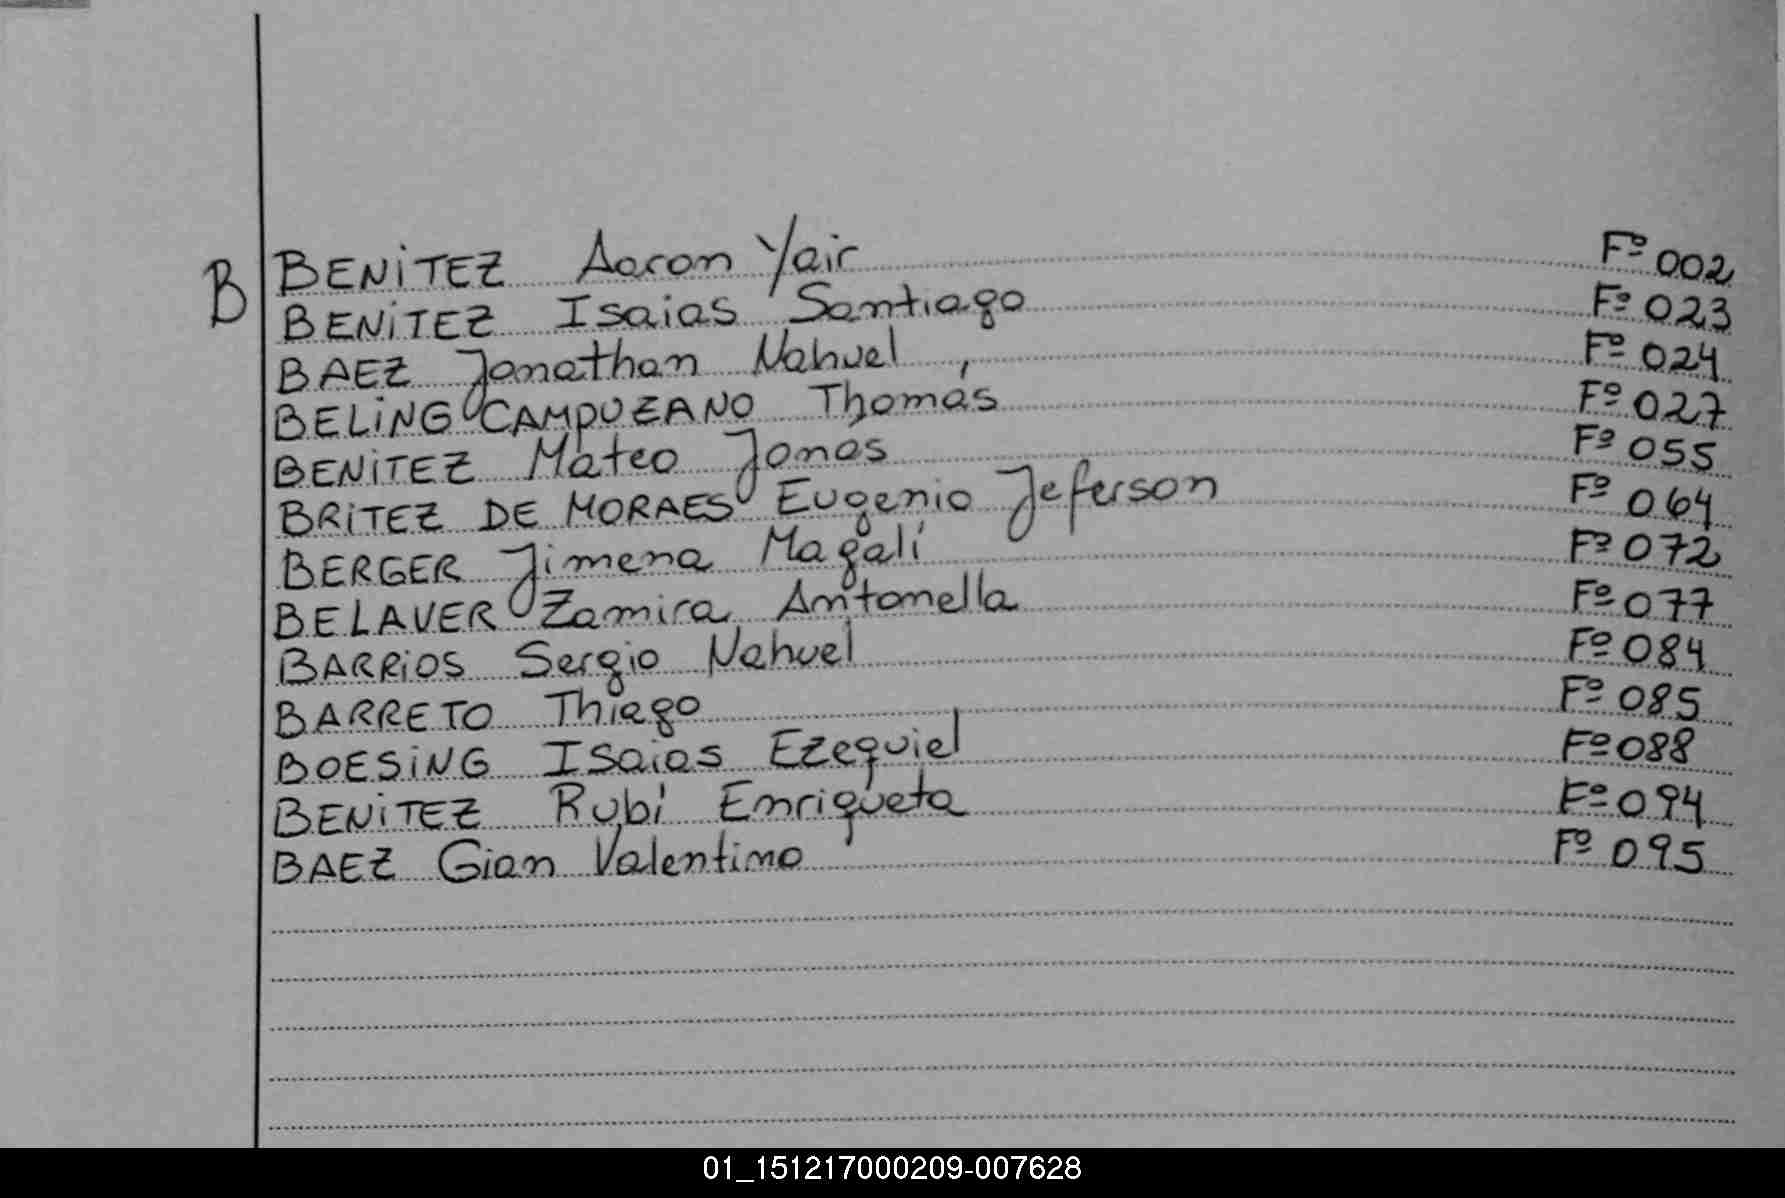 B BENITEZ Aaron Yair Fº 002
BENITEZ Isaias Santiago Fº 023
BAEZ Jonathan Nahuel Fº 024
BELING CAMPUZANO Thomás Fº 027
BENITEZ Mateo Jonas Fº 055
BRITEZ DE MORAES Eugenio Jeferson Fº 064
BERGER Jimena Magalí Fº 072
BELAVER Zamira Antonella Fº 077
BARRIOS Sergio Nahuel Fº 084
BARRETO Thiago Fº 085
BOESING Isaias Ezequiel Fº 088
BENITEZ Rubí Enriqueta Fº 094
BAEZ Gian Valentino Fº 095
01_151217000209-007628